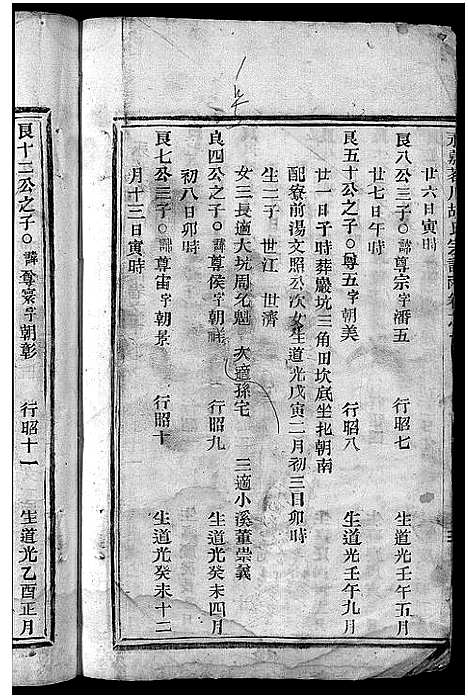 艮八公三子○諱尊宗字潘五　行昭七　生道光壬午五月
廿六日寅時
廿七日午時
艮五十公之子○尊五字朝美　行昭八　生道光壬午九月
廿一日子時葬巖坑三角田坎底坐北朝南
配寮前湯文照公次女生道光戊寅二月初三日卯時
生二子　世江　世濟
女三長適大坑周允魁　次適孫宅　三適小溪董崇義
艮四公之子○諱尊侯字朝　行昭九　生道光癸未四月
初八日卯時
艮七公三子○諱尊宙字朝景　行昭十　生道光癸未十二
月十三日寅時
艮十二公之子○諱尊寰字朝彰　行昭十一　生道光乙酉正月